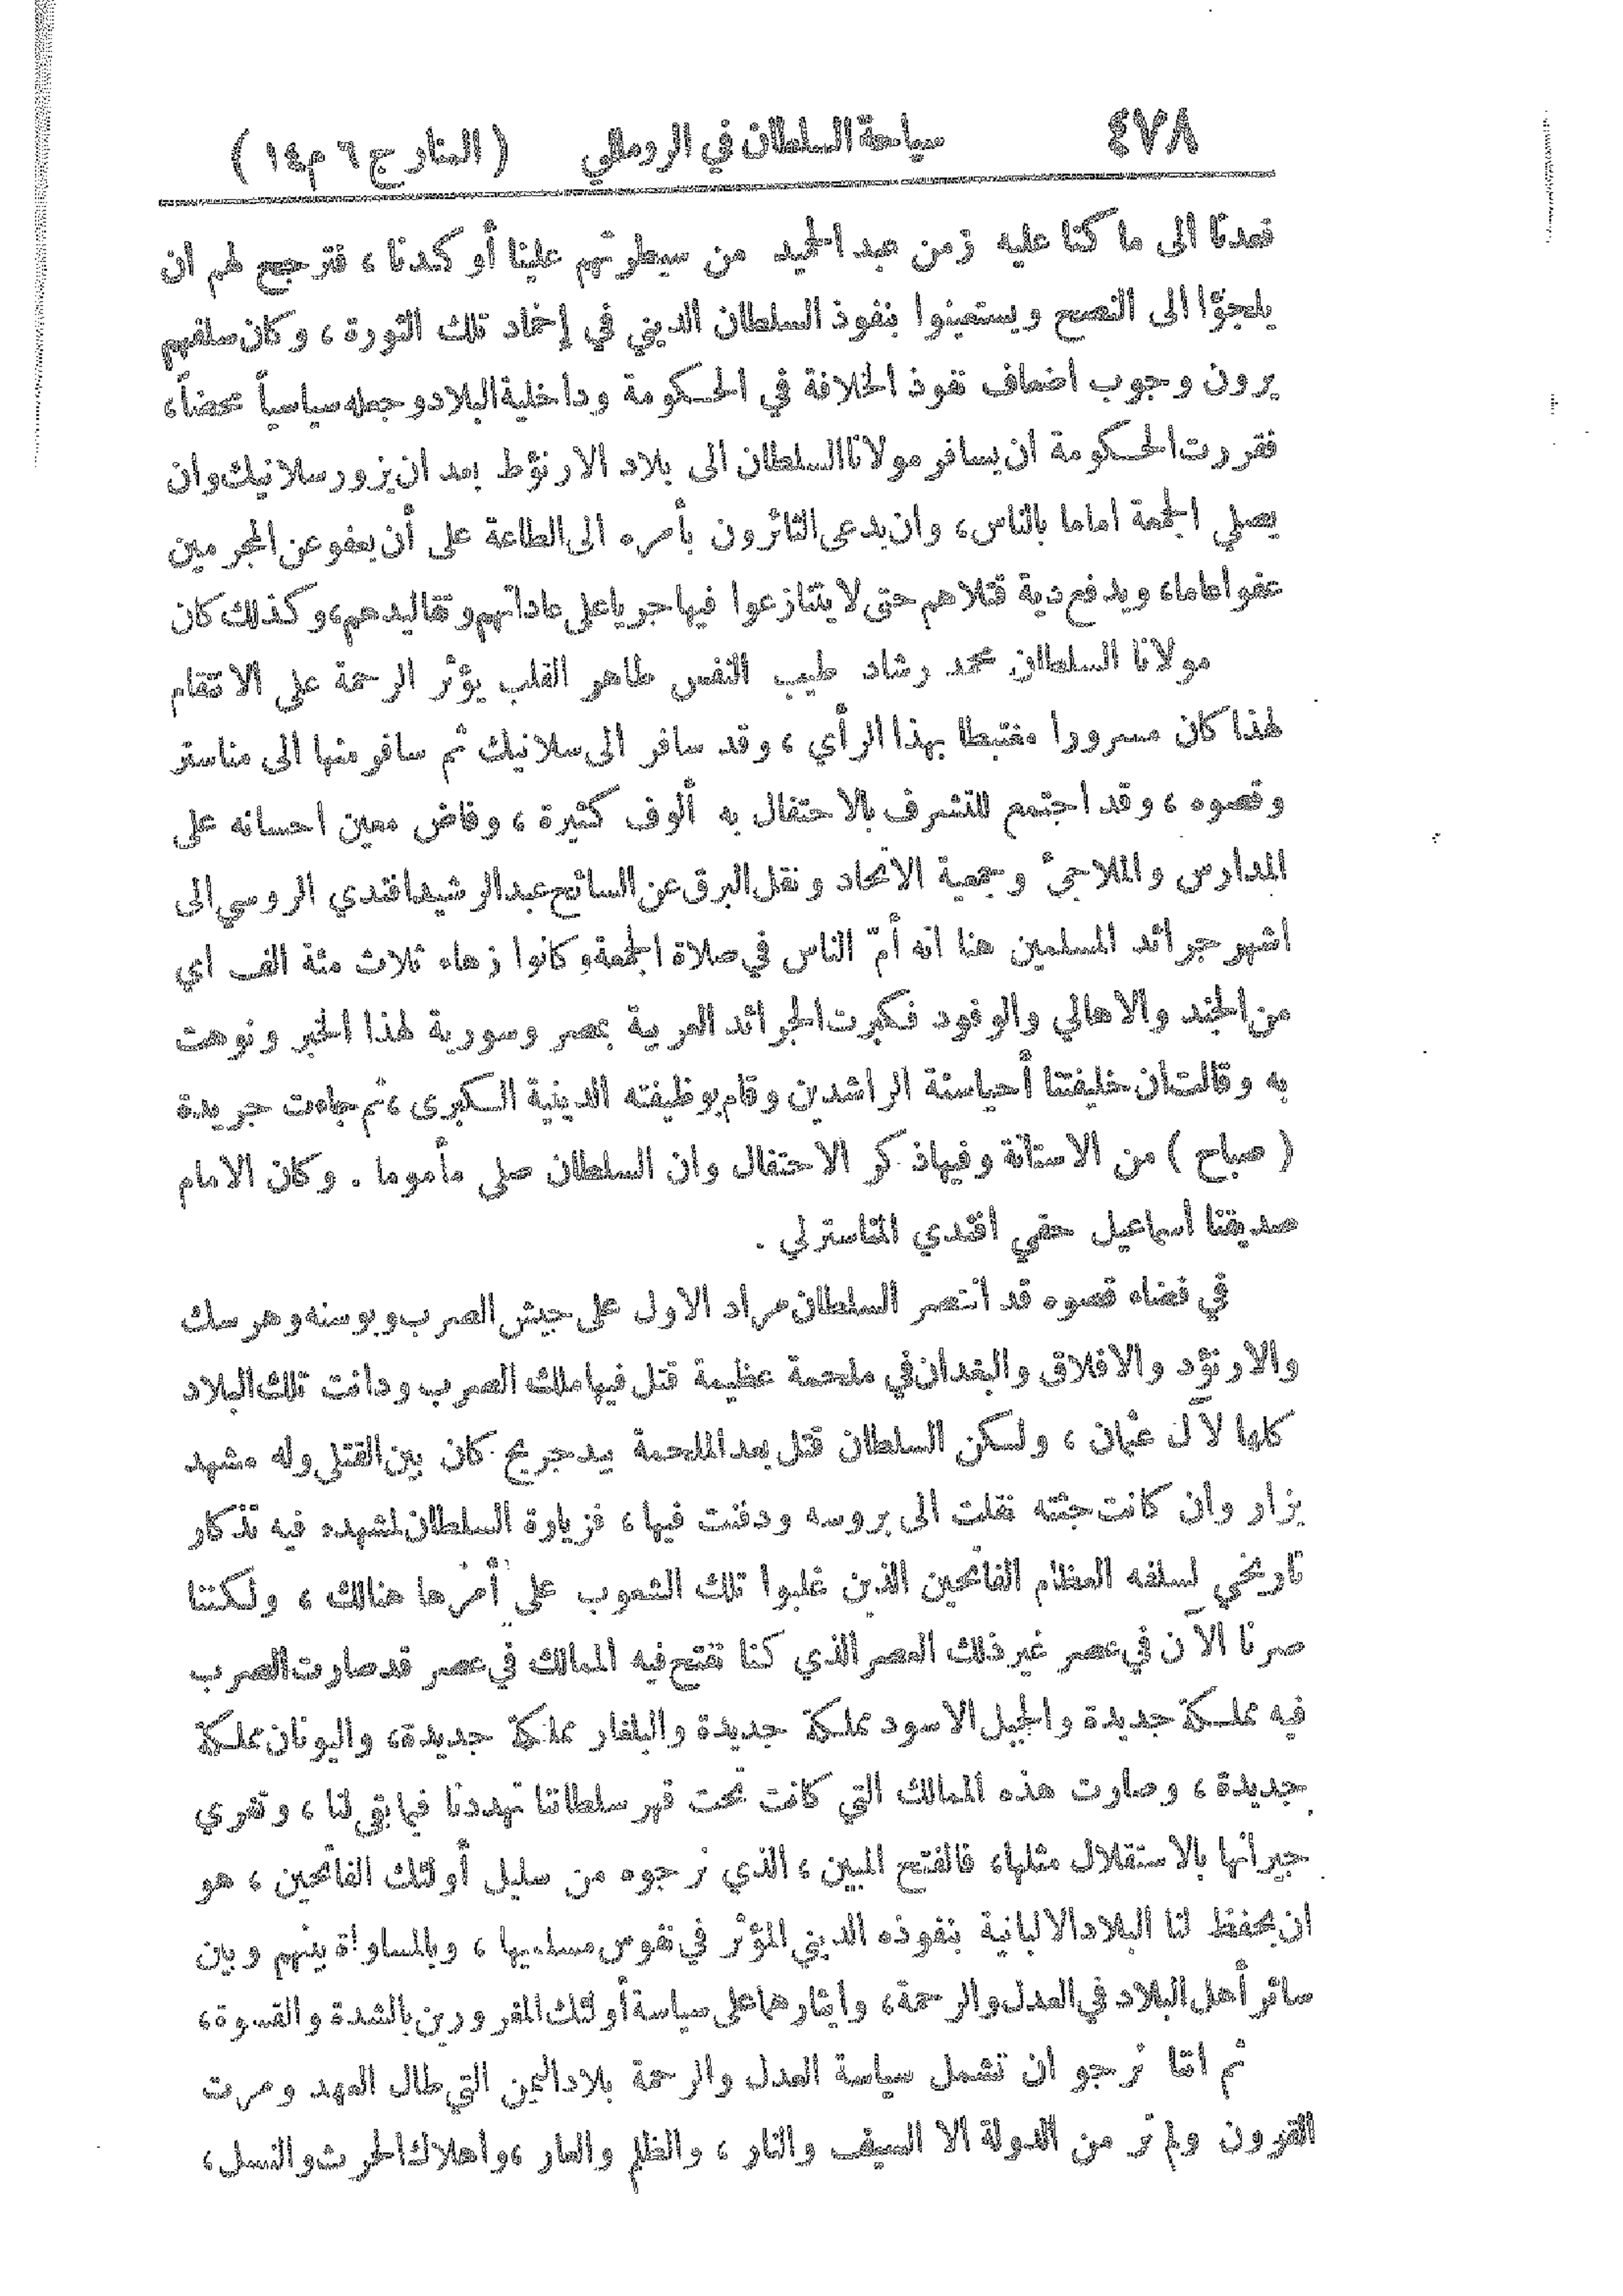 ٤٧٨ سياحة السلطان في الروملي ( المنارج ٦ م ١٤ )
نعدنا الى ما كنا عليه زمن عبد الحميد من سيطرتهم علينا أو كدنا ، فترجح لهم ان
يلجؤا الى النصح ويستعينوا بنفوذ السلطان الديني في إخماد تلك الثورة ، وكان سلفهم
يرون وجوب اضعاف نفوذ الخلافة في الحكومة وداخلية البلاد وجعله سياسياً محضاً،
فقررت الحكومة ان يسافر مولانا السلطان الى بلاد الارنؤط بعد ان يزور سلانيك وان
يصلي الجمعة اماما بالناس ، وان يدعى الثائرون بأمره الى الطاعة على أن يعفو عن المجرمين
عفوا عاما، ويدفع دية قتلاهم حتى لا يتنازعوا فيها جريا على عاداتهم وتقاليدهم، وكذلك كان
مولانا السلطان محمد رشاد طيب النفس طاهر القلب يؤثر الرحمة على الانتقام
لهذا كان مسرورا مغتبطا بهذا الرأي ، وقد سافر الى سلانيك ثم سافر منها الى مناستر
وقصوه ، وقد اجتمع للتشرف بالاحتفال به ألوف كثيرة ، وفاض معين احسانه على
المدارس والملاجئ وجمعية الاتحاد ونقل البرق عن السائح عبد الرشيد افندي الروسي الى
اشهر جرائد المسلمين هنا انه أمّ الناس في صلاة الجمعة وكانوا زهاء ثلاث مئة الف اي
من الجند والاهالي والوفود فكبرت الجرائد العربية بمصر وسورية لهذا الخبر ونوهت
به وقالت ان خليفتنا أحيا سنة الراشدين وقام بوظيفته الدينية الكبرى ، ثم جاءت جريدة
( صباح ) من الاستانة وفيها ذكر الاحتفال وان السلطان صلى مأموما . وكان الامام
صديقنا اسماعيل حقي افندي المناسترلي .
في فضاء قصوه قد انتصر السلطان مراد الاول على جيش الصرب وبوسنه وهرسك
والارنؤد والافلاق والبغدان في ملحمة عظيمة قتل فيها ملك الصرب ودانت تلك البلاد
كلها لآل عثمان ، ولكن السلطان قتل بعد الملحمة بيد جريح كان بين القتلى وله مشهد
يزار وان كانت جثته نقلت الى بروسه ودفنت فيها ، فزيارة السلطان لمشهده فيه تذكار
تاريخي لسلفه العظام الفاتحين الذين غلبوا تلك الشعوب على أمرها هنالك ، ولكننا
صرنا الآن في عصر غير ذلك العصر الذي كنا نفتح فيه الممالك في عصر قد صارت الصرب
فيه مملكة جديدة والجبل الاسود مملكة جديدة والبلغار مملكة جديدة، واليونان مملكة
جديدة ، وصارت هذه الممالك التي كانت تحت قهر سلطاننا تهددنا فيما بقي لنا ، وتغري
جيرانها بالاستقلال مثلها، فالفتح المبين ، الذي نرجوه من سليل أولئك الفاتحين ، هو
ان يحفظ لنا البلاد الالبانية بنفوذه الديني المؤثر في نفوس مسلميها ، وبالمساواة بينهم وبين
سائر أهل البلاد في العدل والرحمة، وايثارها على سياسة أولئك المغرورين بالشدة والقسوة،
ثم اننا نرجو ان تشمل سياسة العدل والرحمة بلاد اليمن التي طال العهد ومرت
القرون ولم تر من الدولة الا السيف والنار ، والظلم والعار ، واهلاك الحرث والنسل ،